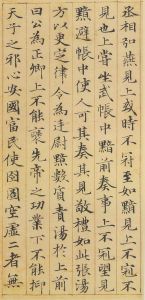 丞相弘燕見上或時不冠至如黯見上不冠不
見也上嘗坐武帳中黯前奏事上不冠望見
黯避帳中使人可其奏其見敬禮如此張湯
方以更定律令為廷尉黯數質責湯於上前
曰公為正卿上不能襃先帝之功業下不能抑
天下之邪心安國富民使囹圄空虛二者無